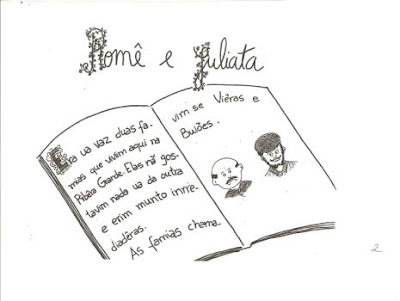 Romê e Juliata
Era ua vaz duas fa-
mias que vivêm aqui na
Ribêra Grande. Elas nã gos-
tavim nada ua da outra
e erim munto inrre-
diadêras.
As famias chama-
vim se Viêras e
Buiões.
2